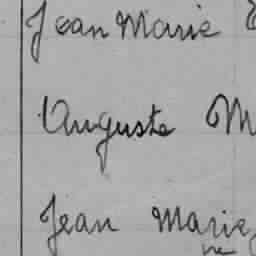 Jean Marie
Auguste M
Jean Marie